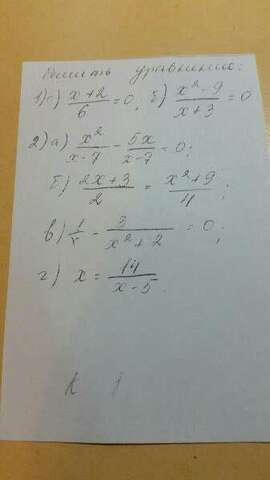 Решить уравнения:
1) а) x+2/6 = 0, б) x²-9/x+3 = 0
2) а) x²/x-7 - 5x/x-7 = 0;
б) 2x+3/2 = x²+9/4;
в) 1/x - 3/x²+2 = 0;
г) x = 14/x-5.